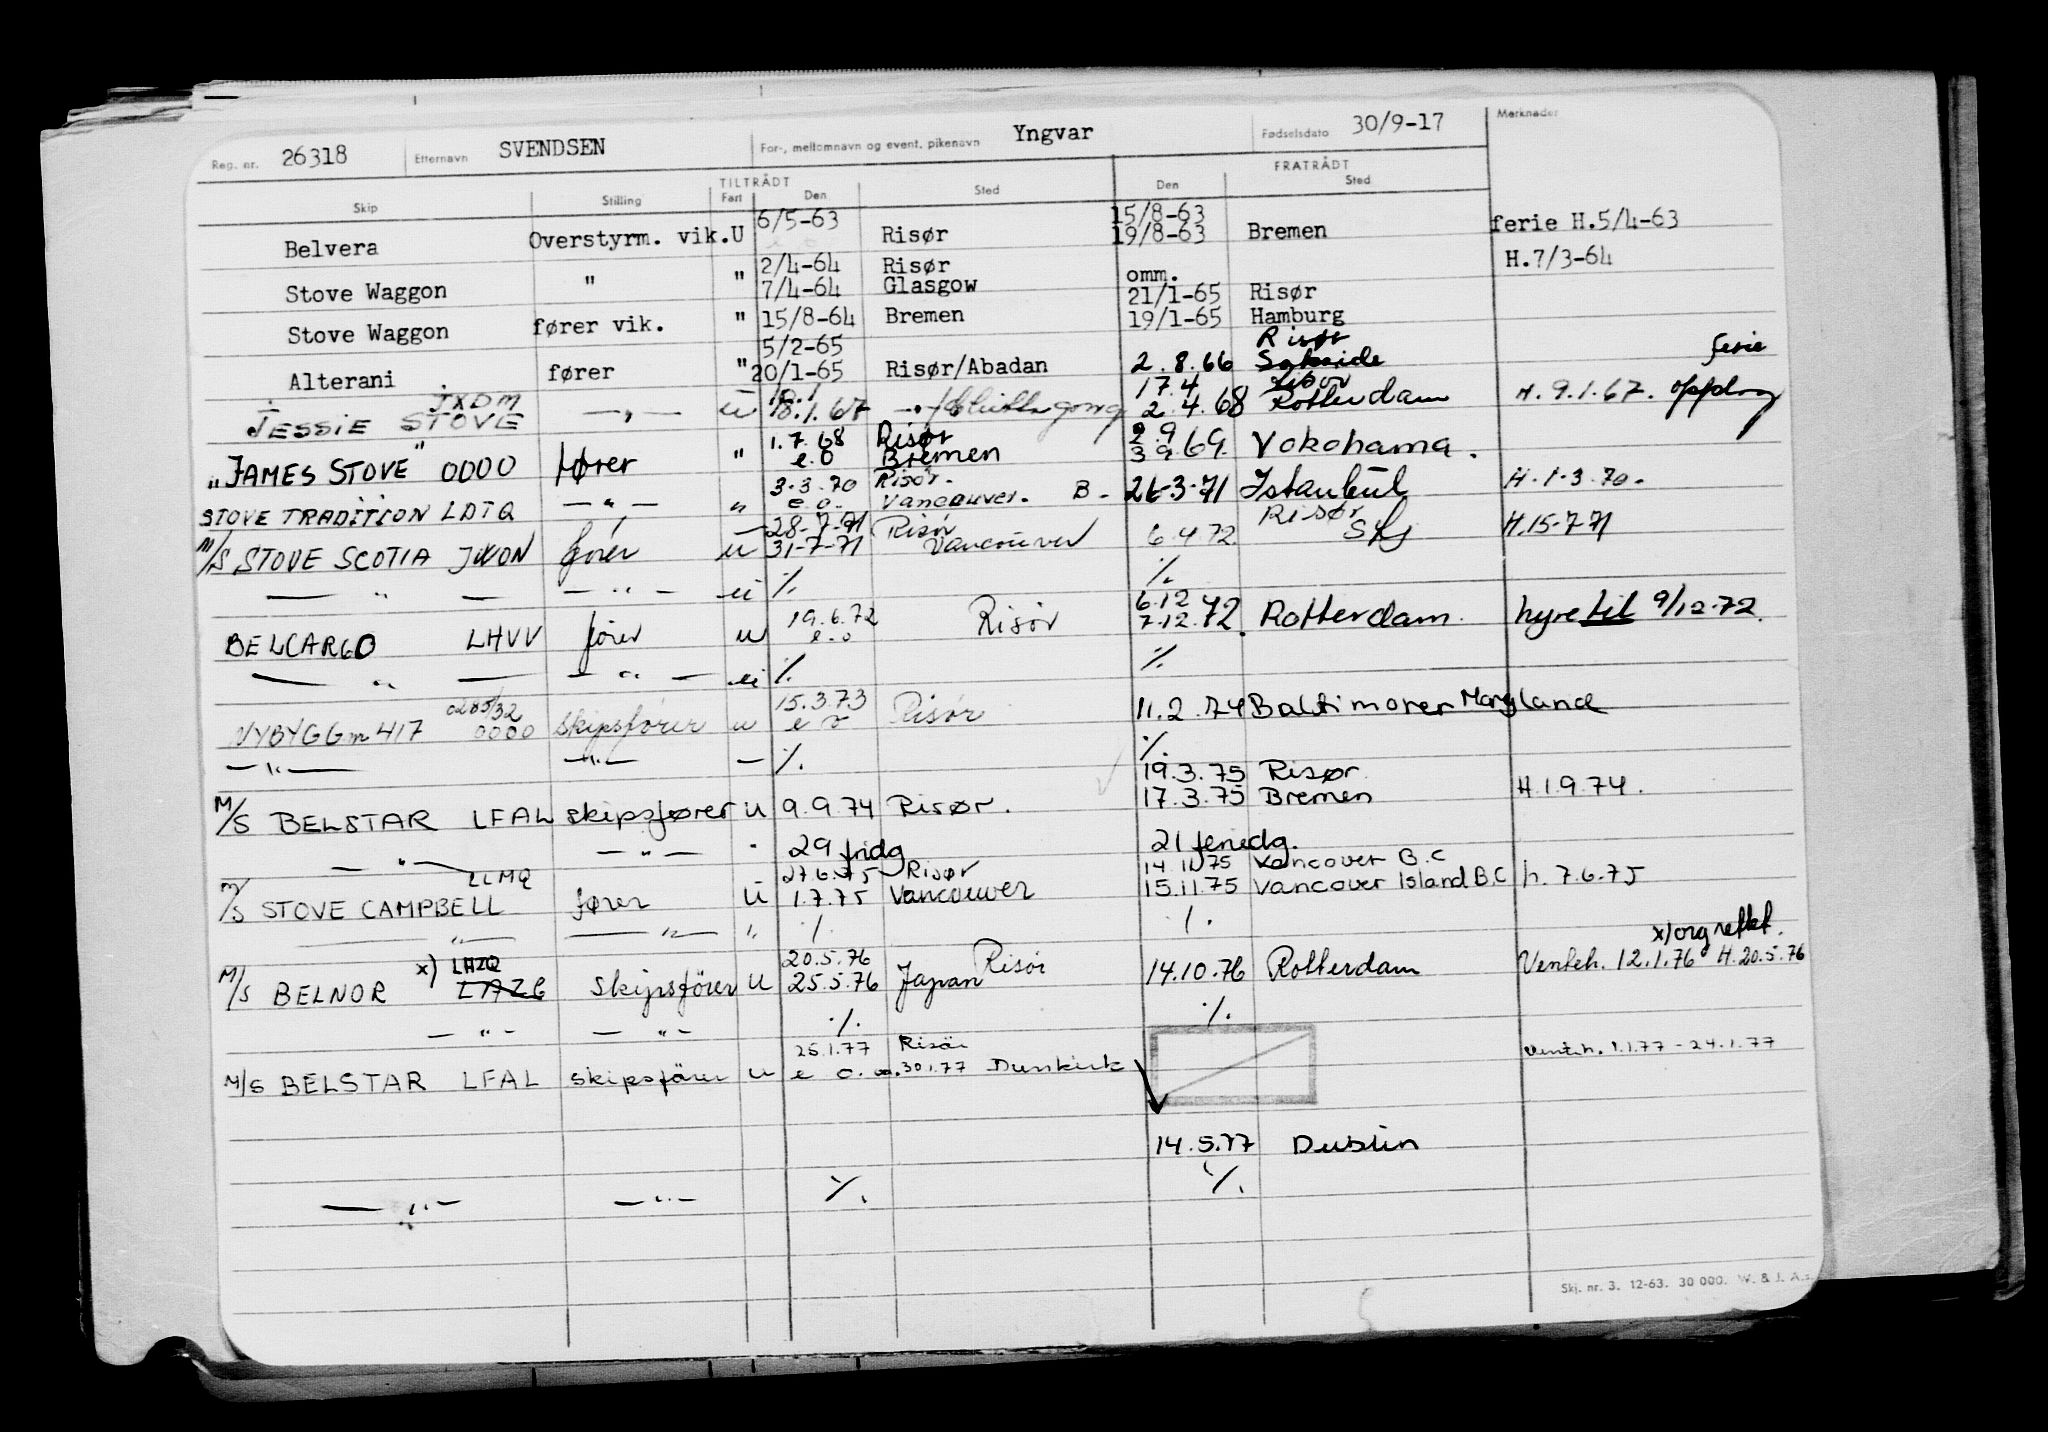 Reg. nr. 26318 Etternavn SVENDSEN For-, mellomnavn og event. pikenavn Yngvar Fødselsdato 30/9-17 Merknader
TILTRÅDT FRATRÅDT
Skip Stilling Fart Den Sted Den Sted
6/5-63 15/8-63
Belvera Overstyrm. vik. U Risør 19/8-63 Bremen ferie H.5/4-63
2/4-64 Risør omm. H.7/3-64
Stove Waggon " " 7/4-64 Glasgow 21/1-65 Risør
Stove Waggon fører vik. " 15/8-64 Bremen 19/1-65 Hamburg
5/2-65 Risør
Alterani fører " 20/1-65 Risør/Abadan 2.8.66 ferie
JXDM 17.4
JESSIE STOVE — " — u 18.1.67 2.4.68 Rotterdam H. 9.1.67. oppdrag
1.7.68 Risør 2.9
"JAMES STOVE" 0000 fører " e.o Bremen 3.9.69. Yokohama.
3.3.70 Risør.
STOVE TRADITION LDTQ — " — " e.o. Vancouver. B- 26-3-71 Istanbul H.1-3.70.
28-7-71 Risør Risør
M/S STOVE SCOTIA JWON fører u 31-7-71 Vancouver 6.4.72 Skj H.15-7-71
— " — — " — u ٪ ٪
19.6.72 6.12
BELCARGO LHVV fører u e.o Risør 7.12.72. Rotterdam. hyre til 9/12-72.
— " — — " — u ٪ ٪
0285/32 15.3.73
NYBYGG nr 417 0000 skipsfører u e o Risør 11.2.74 Baltimorer Maryland
— " — — " — — ٪ ٪
19.3.75 Risør
M/S BELSTAR LFAL skipsfører u 9.9.74 Risør. 17.3.75 Bremen H.1.9.74.
— " — — " — " 29 fridg 21 feriedg.
LLMQ 27.6.75 Risør 14.11.75 Vancover B.C
M/S STOVE CAMPBELL fører U 1.7.75 Vancouver 15.11.75 Vancover Island B.C h. 7.6.75
— " — — " — " ٪ ٪
x) LHZQ 20.5.76 Risør x) org rettet.
M/S BELNOR skipsfører U 25.5.76 Japan 14.10.76 Rotterdam Venteh. 12.1.76 H.20.5.76
— " — — " — ٪ ٪
25.1.77 Risør Venteh. 1.1.77 - 24.1.77
M/S BELSTAR LFAL skipsfører u e o. 30.1.77 Dunkirk
14.5.77 Dublin
— " — — " — ٪ ٪
Skj. nr. 3. 12-63. 30 000. W. & J. A.s